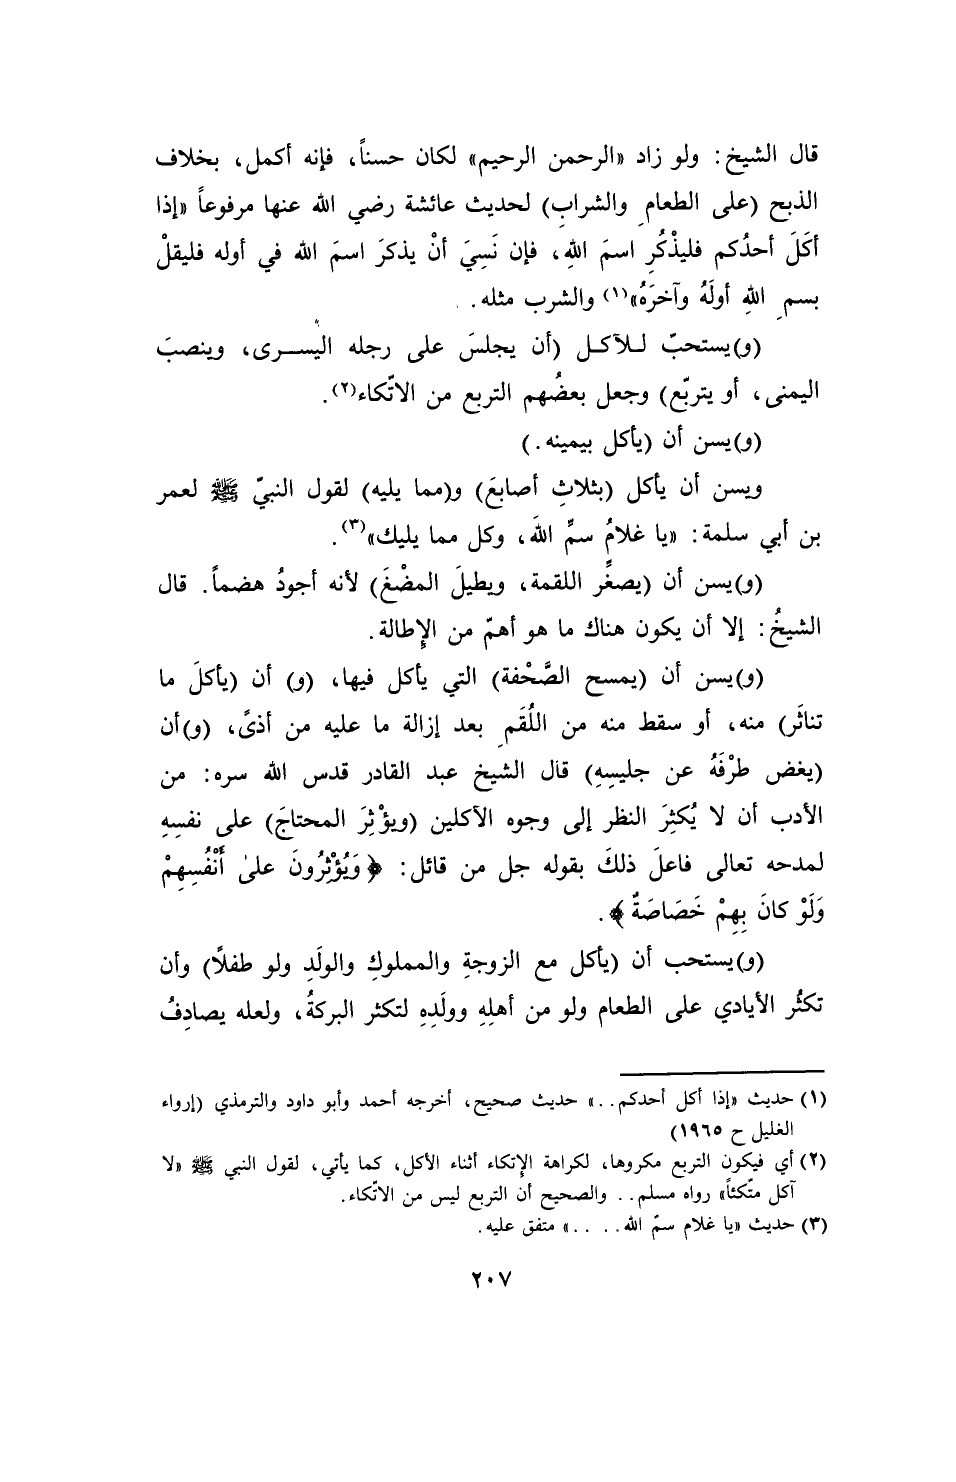 قال الشيخ: ولو زاد «الرحمن الرحيم» لكان حسناً، فإنه أكمل، بخلاف
الذبح (على الطعامِ والشرابِ) لحديث عائشة رضي الله عنها مرفوعاً «إذا
أكَلَ أحدُكم فليذْكُرِ اسمَ اللهِ، فإن نَسِيَ أنْ يذكرَ اسمَ الله في أوله فليقلْ
بسمِ اللهِ أولَهُ وآخرَهُ»(١) والشرب مثله.
(و)يستحبّ للآكل (أن يجلسَ على رجله اليسرى، وينصبَ
اليمنى، أو يتربّع) وجعل بعضُهم التربع من الاتّكاء(٢).
(و)يسن أن (يأكل بيمينه.)
ويسن أن يأكل (بثلاثِ أصابعَ) و(مما يليه) لقول النبيّ ﷺ لعمر
بن أبي سلمة: «يا غلامُ سمِّ اللهَ، وكل مما يليك»(٣).
(و)يسن أن (يصغِّر اللقمة، ويطيلَ المضْغَ) لأنه أجودُ هضماً. قال
الشيخُ: إلا أن يكون هناك ما هو أهمّ من الإِطالة.
(و)يسن أن (يمسح الصَّحْفة) التي يأكل فيها، (و) أن (يأكلَ ما
تناثَر) منه، أو سقط منه من اللُقَمِ بعد إزالة ما عليه من أذىً، (و)أن
(يغض طرْفَهُ عن جليسِهِ) قال الشيخ عبد القادر قدس الله سره: من
الأدب أن لا يُكثِرَ النظر إلى وجوه الآكلين (ويؤثِرَ المحتاجَ) على نفسِهِ
لمدحه تعالى فاعلَ ذلكَ بقوله جل من قائل: ﴿وَيُؤْثِرُونَ علىٰ أَنْفُسِهِمْ
وَلَوْ كانَ بِهِمْ خَصَاصَةٌ﴾.
(و)يستحب أن (يأكل مع الزوجةِ والمملوكِ والولَدِ ولو طفلًا) وأن
تكثُر الأيادي على الطعام ولو من أهلِهِ وولَدِهِ لتكثر البركةُ، ولعله يصادِفُ
(١) حديث «إذا أكل أحدكم..» حديث صحيح، أخرجه أحمد وأبو داود والترمذي (إرواء
الغليل ح ١٩٦٥)
(٢) أي فيكون التربع مكروها، لكراهة الإتكاء أثناء الأكل، كما يأتي، لقول النبي ﷺ «لا
آكل متّكئاً» رواه مسلم.. والصحيح أن التربع ليس من الاتّكاء.
(٣) حديث «يا غلام سمّ الله.. ..» متفق عليه.
٢٠٧